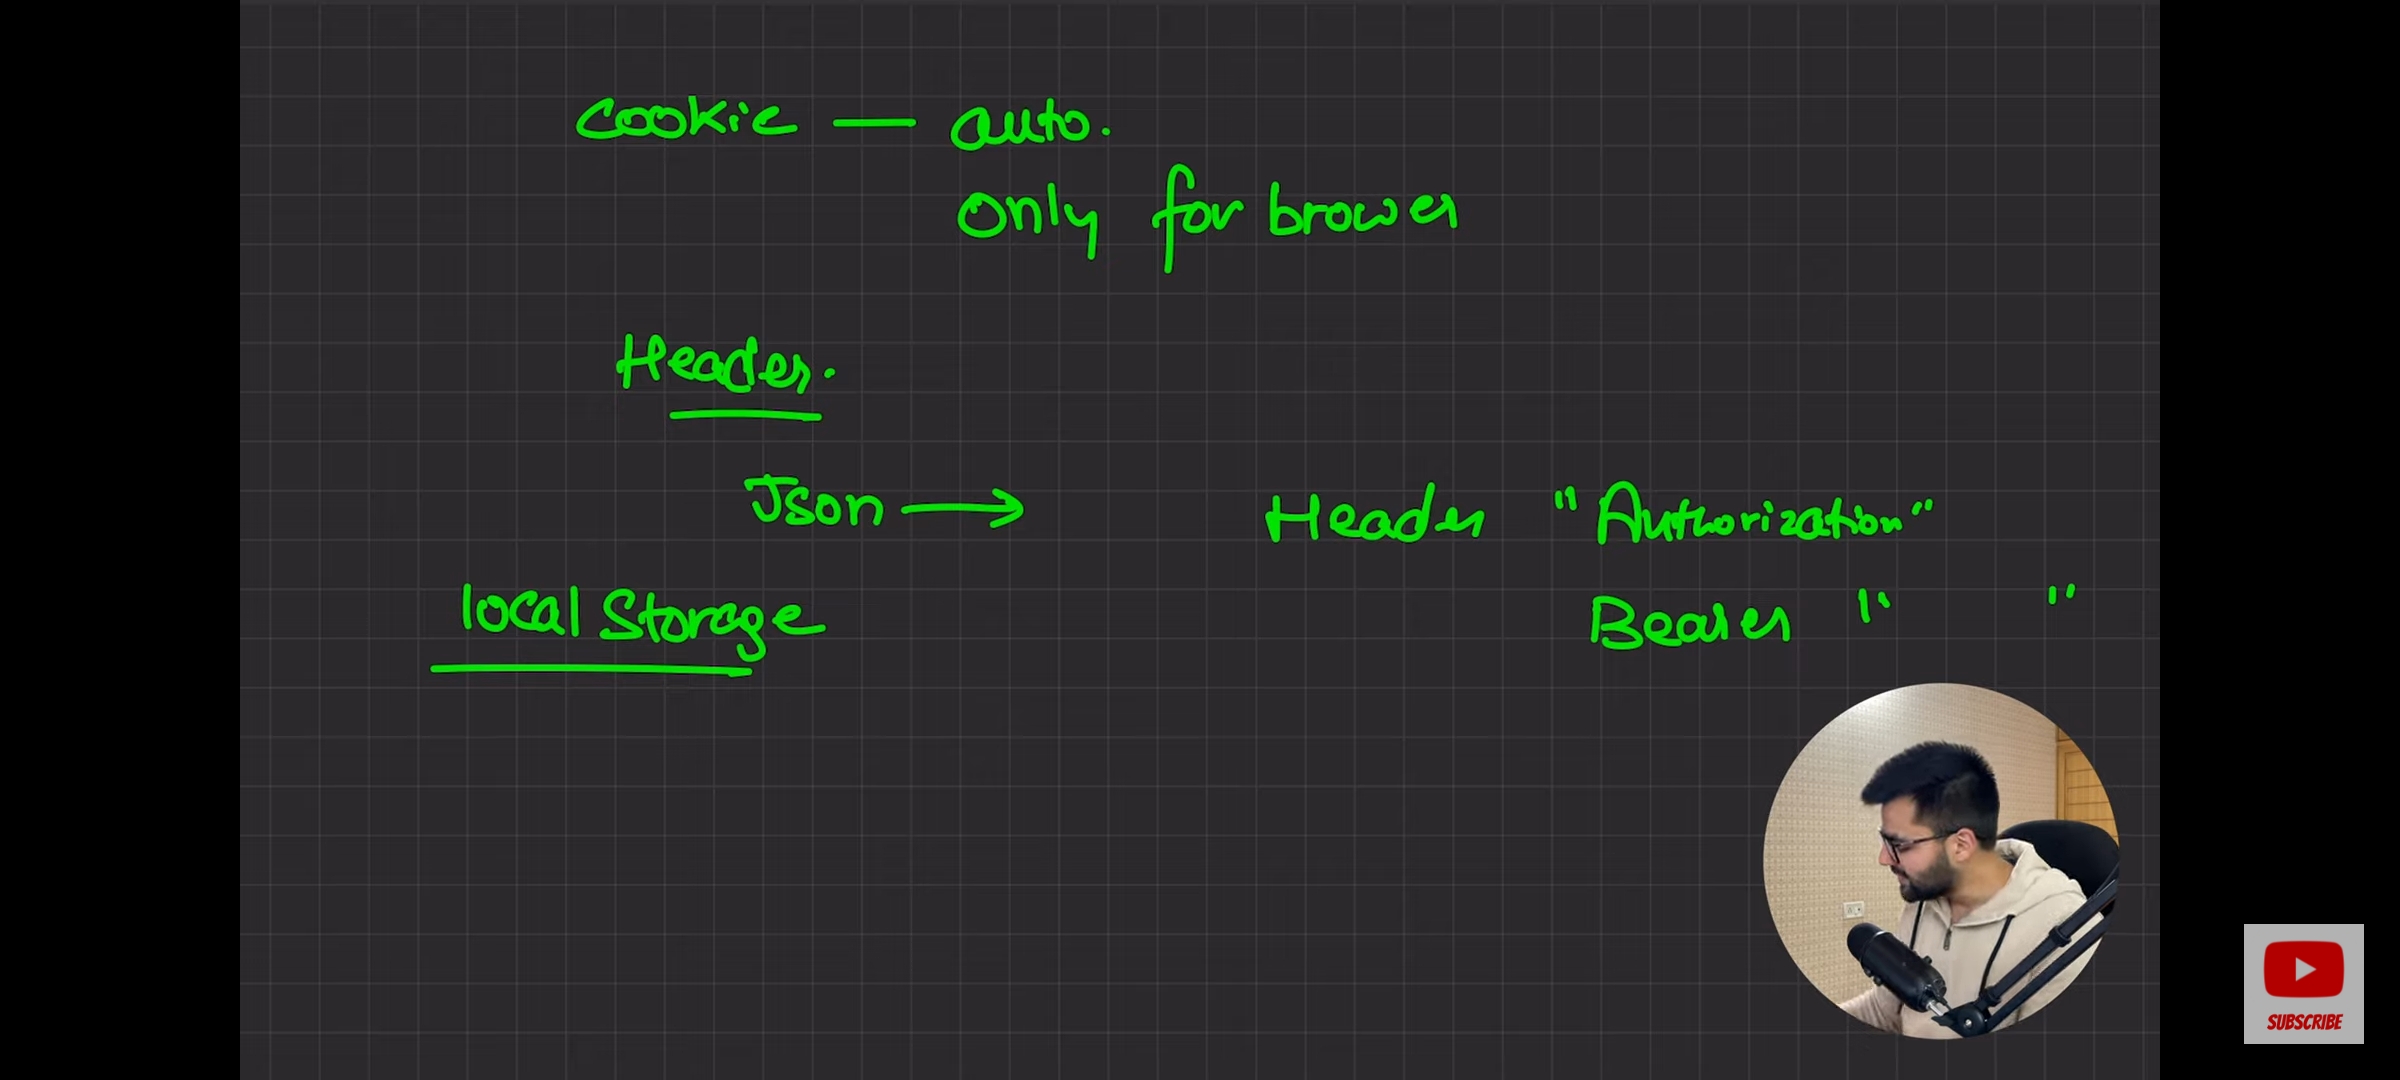 Cookie — auto.
Only for brower
Header.
Json → Header "Authorization"
local Storage Bearer " "
SUBSCRIBE